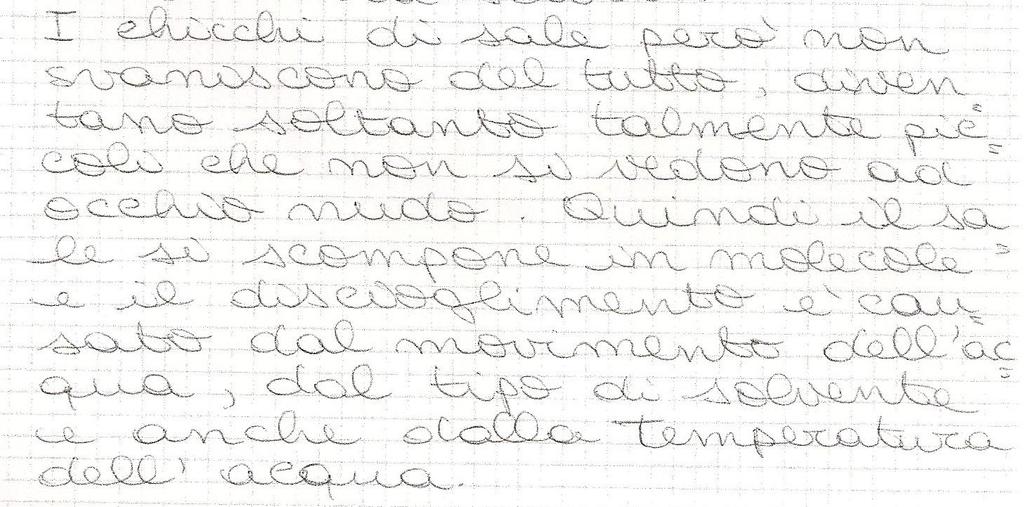 I chicchi di sale però non
svaniscono del tutto, diven
tano soltanto talmente pic=
coli che non si vedono ad
occhio nudo. Quindi il sa=
le si scompone in molecole
e il discioglimento è cau=
sato dal movimento dell'ac=
qua, dal tipo di solvente
e anche dalla temperatura
dell'acqua.